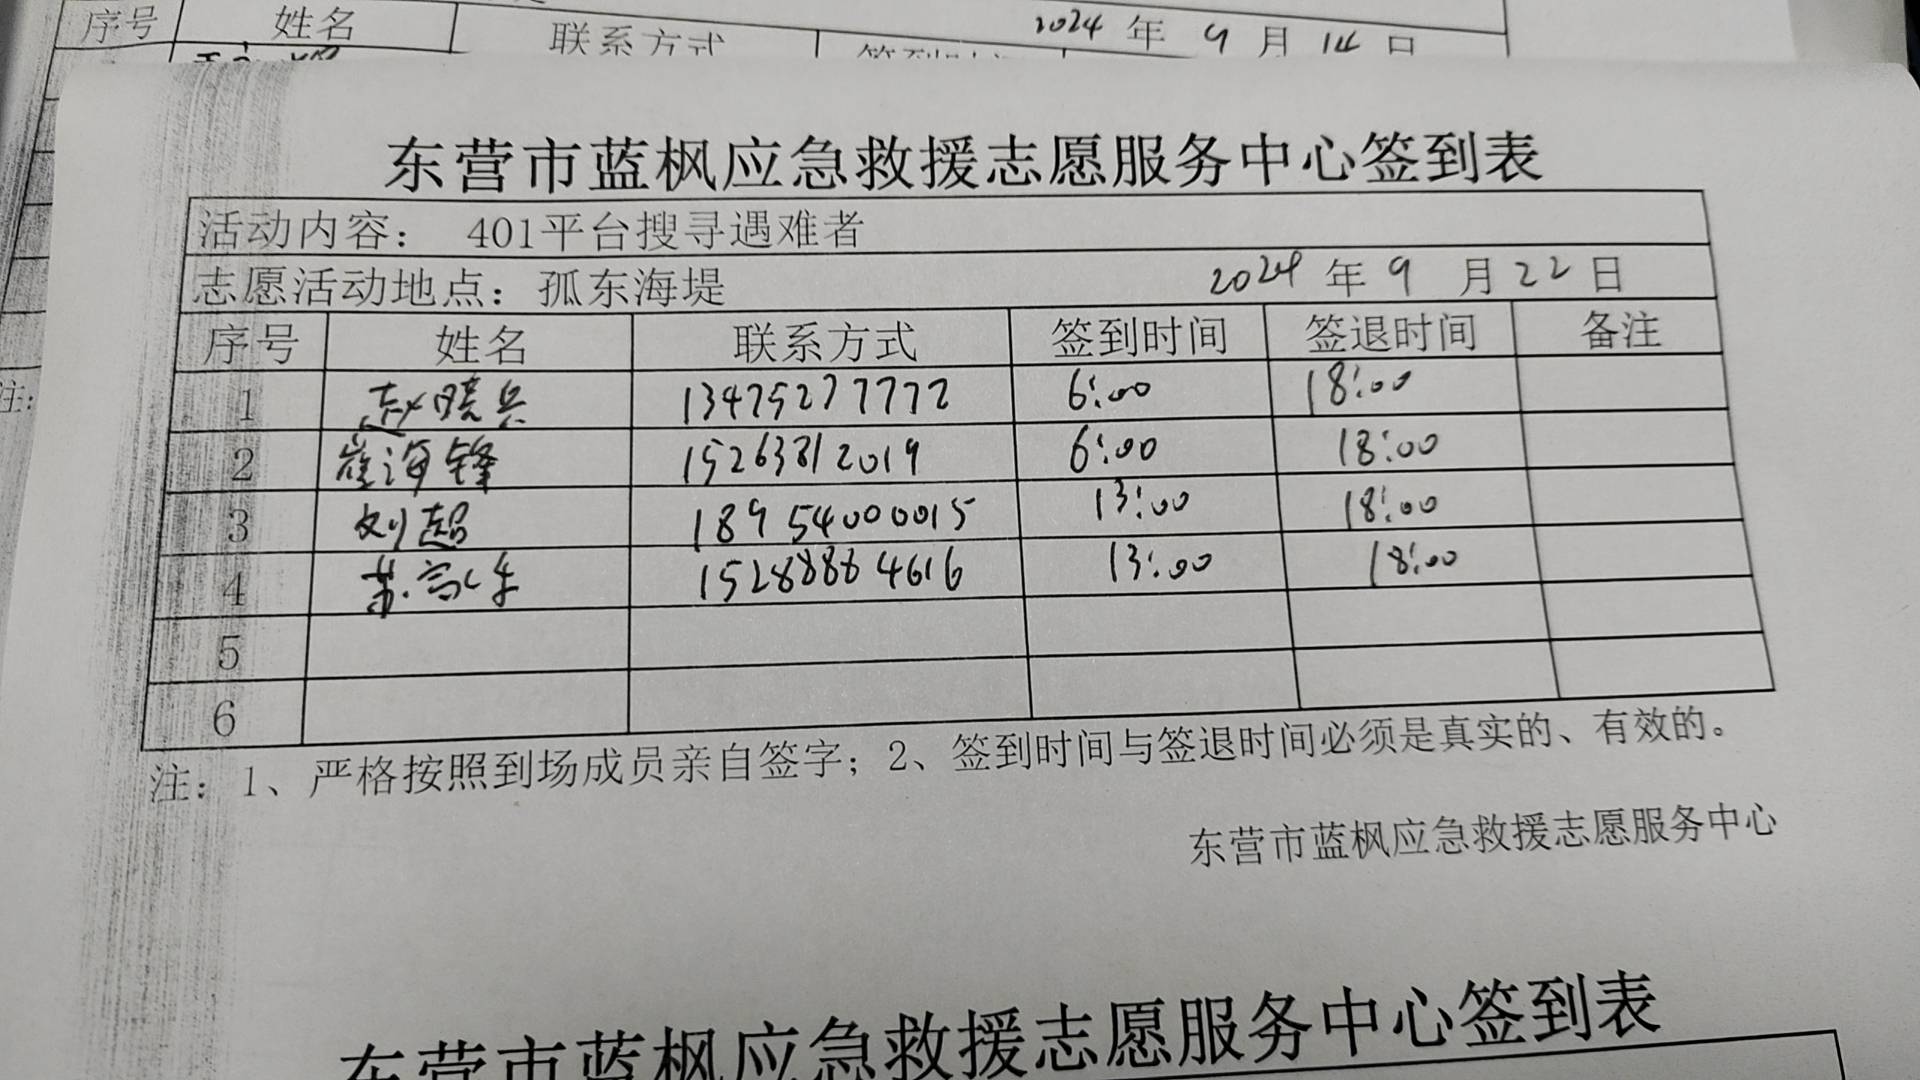 序号 姓名 联系方式 2024 年 9 月 14 日
东营市蓝枫应急救援志愿服务中心签到表
活动内容： 401平台搜寻遇难者
志愿活动地点：孤东海堤 2024 年 9 月 22 日
序号 姓名 联系方式 签到时间 签退时间 备注
1 赵晓兵 13475277772 6:00 18:00
2 崔海锋 15263812019 6:00 18:00
3 刘超 18954000015 13:00 18:00
4 15288884616 13:00 18:00
5
6
注：1、严格按照到场成员亲自签字；2、签到时间与签退时间必须是真实的、有效的。
东营市蓝枫应急救援志愿服务中心
东营市蓝枫应急救援志愿服务中心签到表